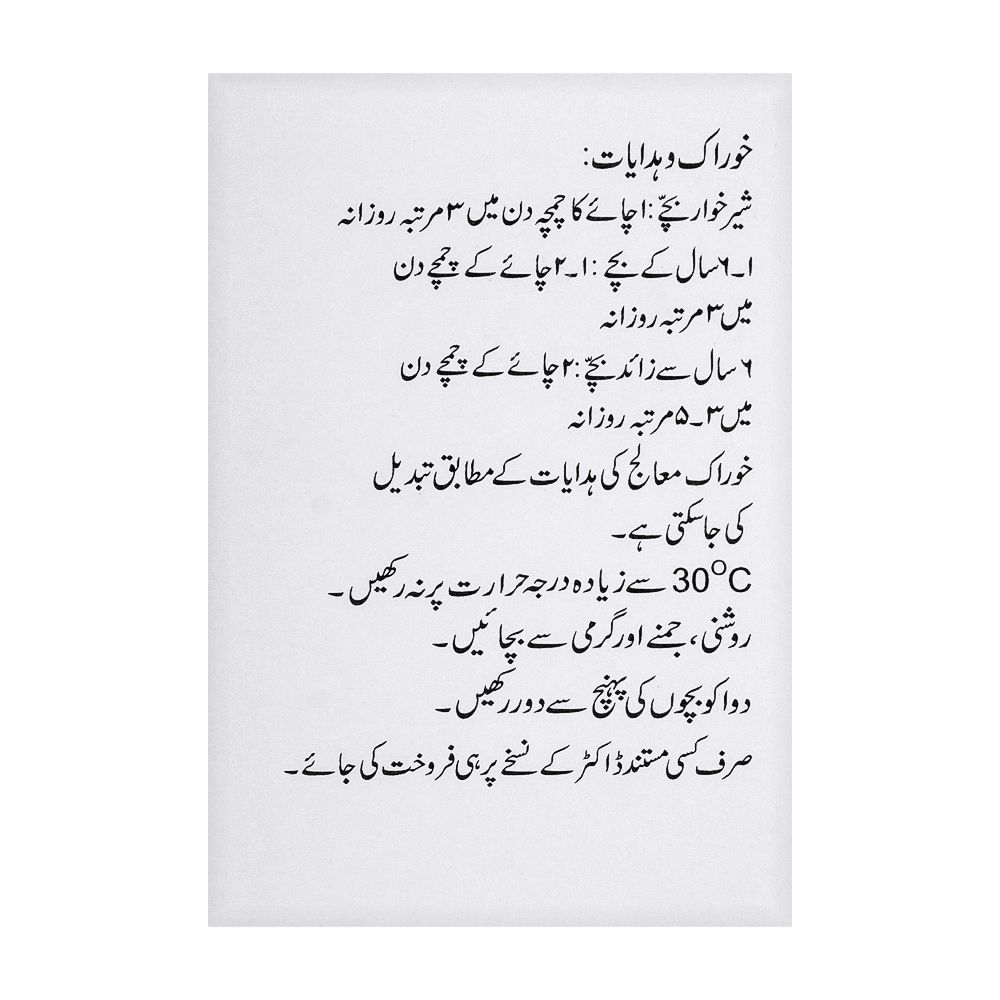 خوراک و ہدایات:
شیر خوار بچّے: ۱ چائے کا چمچہ دن میں ۳ مرتبہ روزانہ
۱۔۶ سال کے بچے : ۱۔۲ چائے کے چمچے دن
میں ۳ مرتبہ روزانہ
۶ سال سے زائد بچّے: ۲ چائے کے چمچے دن
میں ۳۔۵ مرتبہ روزانہ
خوراک معالج کی ہدایات کے مطابق تبدیل
کی جاسکتی ہے۔
30°C سے زیادہ درجہ حرارت پر نہ رکھیں۔
روشنی، جمنے اور گرمی سے بچائیں۔
دوا کو بچوں کی پہنچ سے دور رکھیں۔
صرف کسی مستند ڈاکٹر کے نسخے پر ہی فروخت کی جائے۔